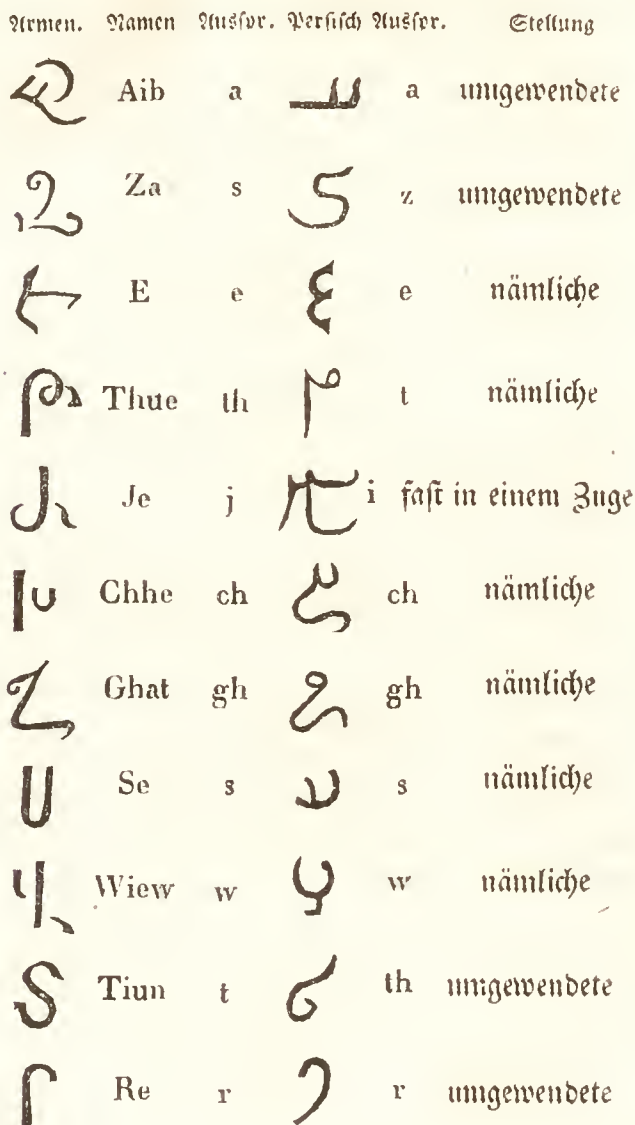 Armen. Namen Ausſpr. Perſiſch Ausſpr. Stellung
Aib a a umgewendete
Za s z umgewendete
E e e nämliche
Thue th t nämliche
Je j i faſt in einem Zuge
Chhe ch ch nämliche
Ghat gh gh nämliche
Se s s nämliche
Wiew w w nämliche
Tiun t th umgewendete
Re r r umgewendete